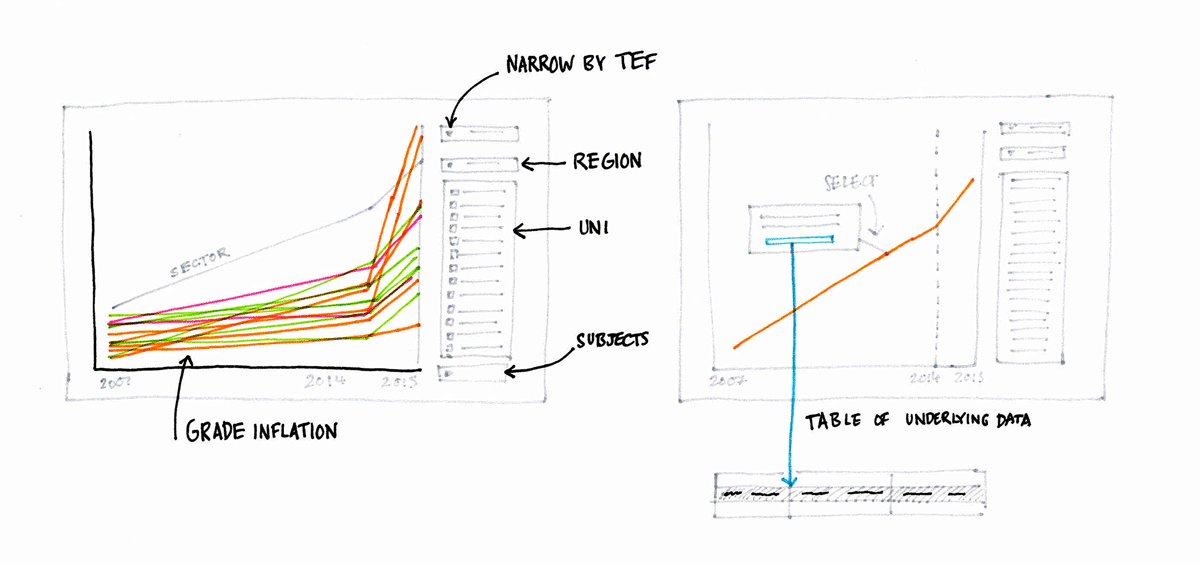 NARROW BY TEF
REGION
UNI
SUBJECTS
SECTOR
2007
2014
GRADE INFLATION
SELECT
2007
2014
TABLE OF UNDERLYING DATA